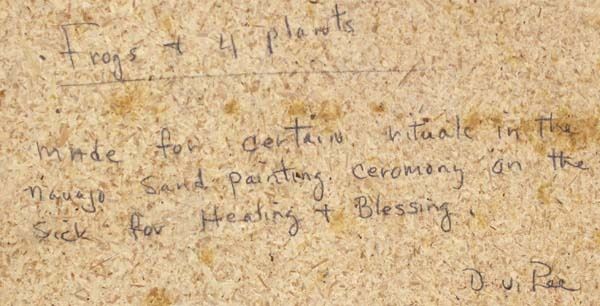 Frogs + 4 plants
made for certain rituals in the
navajo Sand painting ceromony on the
sick for Healing + Blessing.
D. V. Lee